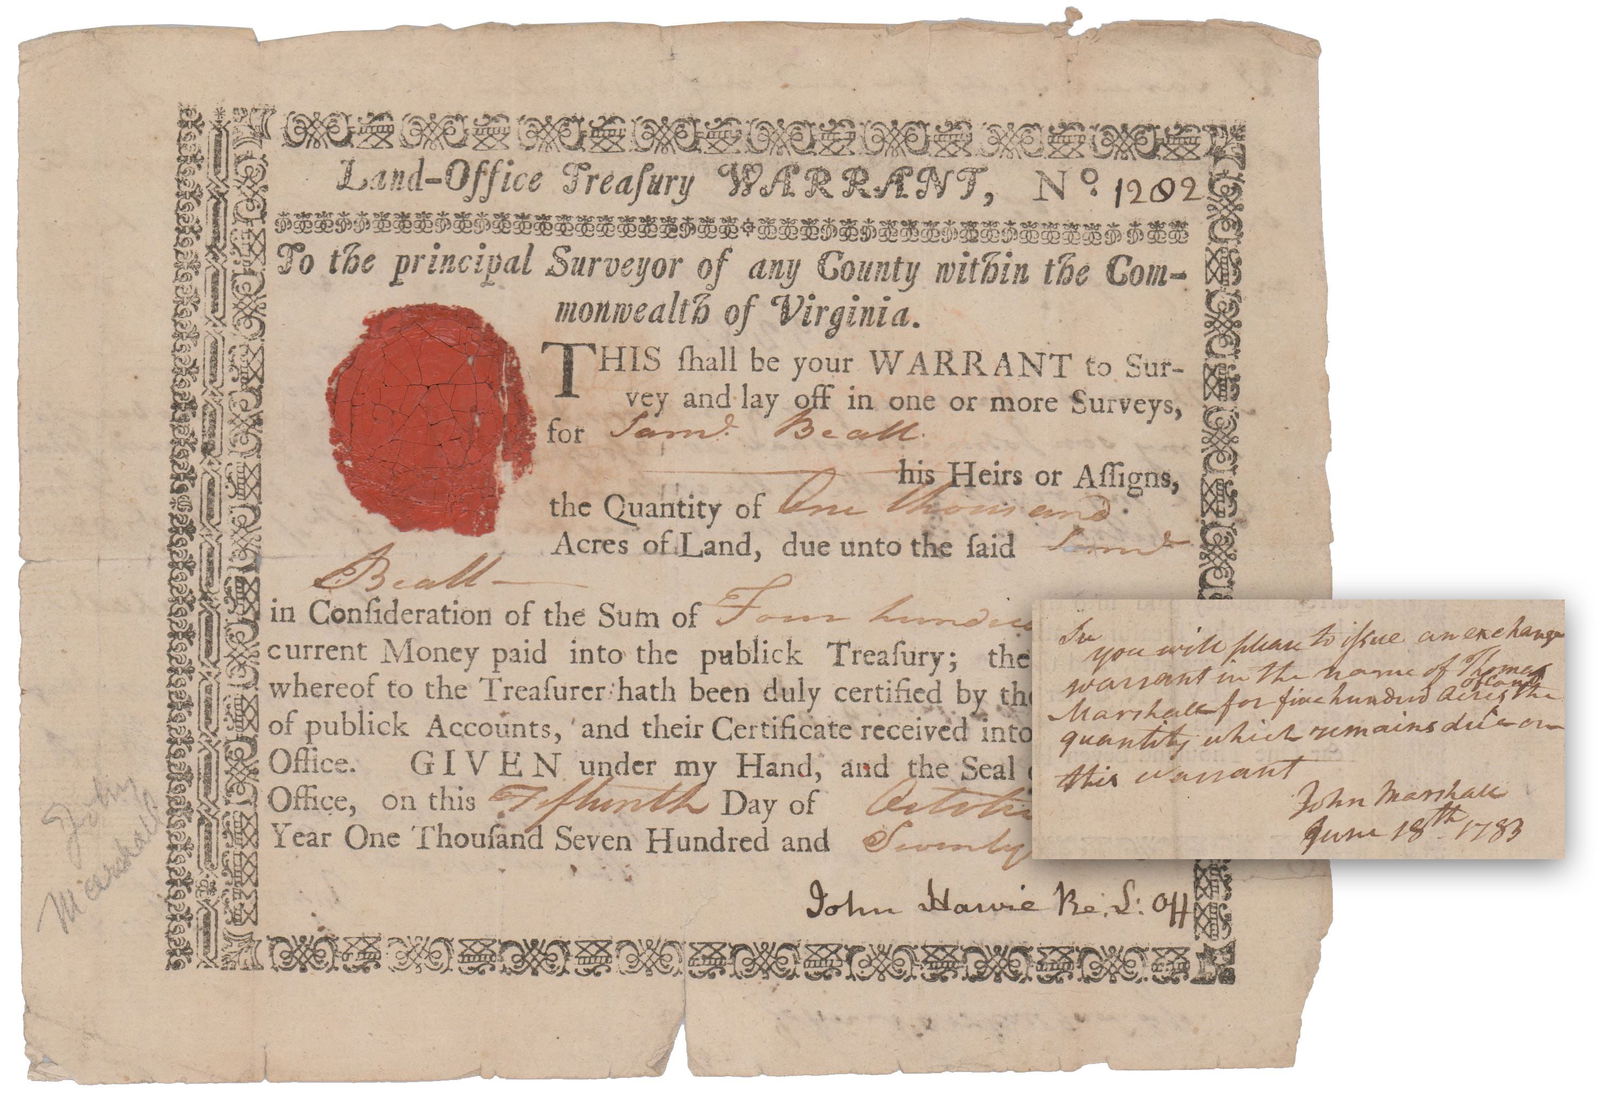 Land-Office Treaſury WARRANT, No. 1202
To the principal Surveyor of any County within the Com-
monwealth of Virginia.
THIS ſhall be your WARRANT to Sur-
vey and lay off in one or more Surveys,
for Saml. Beall
his Heirs or Aſſigns,
the Quantity of One thousand
Acres of Land, due unto the ſaid Saml
Beall
in Conſideration of the Sum of Four hundred
current Money paid into the publick Treaſury; the
whereof to the Treaſurer hath been duly certified by the
of publick Accounts, and their Certificate received into
Office. GIVEN under my Hand, and the Seal
Office, on this Fifteenth Day of October
Year One Thouſand Seven Hundred and Seventy
John Harvie Re. L: Off
John
Marshall
Sir
you will please to issue an exchange
warrant in the name of Thomas
Marshall for five hundred acres of land the
quantity which remains due on
this warrant
John Marshall
June 18th 1783